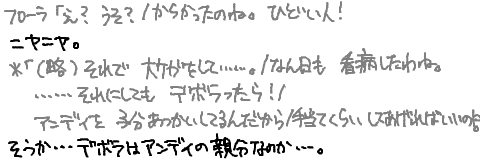 フローラ「え？ うそ？ / からかったのね。 ひどい人！
ニヤニヤ。
※「(略) それで 大ケガをして……。/ なん日も 看病したわね。
……それにしても デボラったら！/
アンディを 子分あつかいしてるんだから / 手当てくらい してあげればいいのに
そうか…デボラはアンディの親分なのか…。